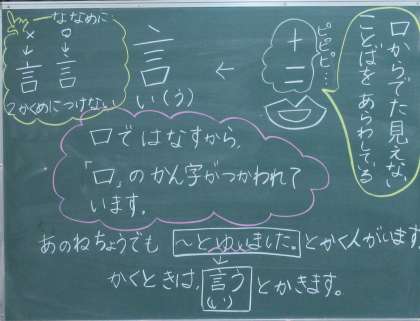 口からでた見えない
ことばをあらわしている
ピピピ…
十
二
←
言
い(う)
ななめに
× ロ
↓ ↓
言 言
2かくめにつけない
口ではなすから、
「口」のかん字がつかわれて
います。
あのねちょうでも 〜とゆいました。とかく人がいます
↓
かくときは、言う とかきます。
(い)